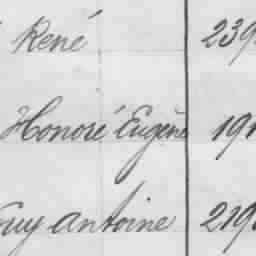 René 239
Honoré Eugène 191
Guy Antoine 219